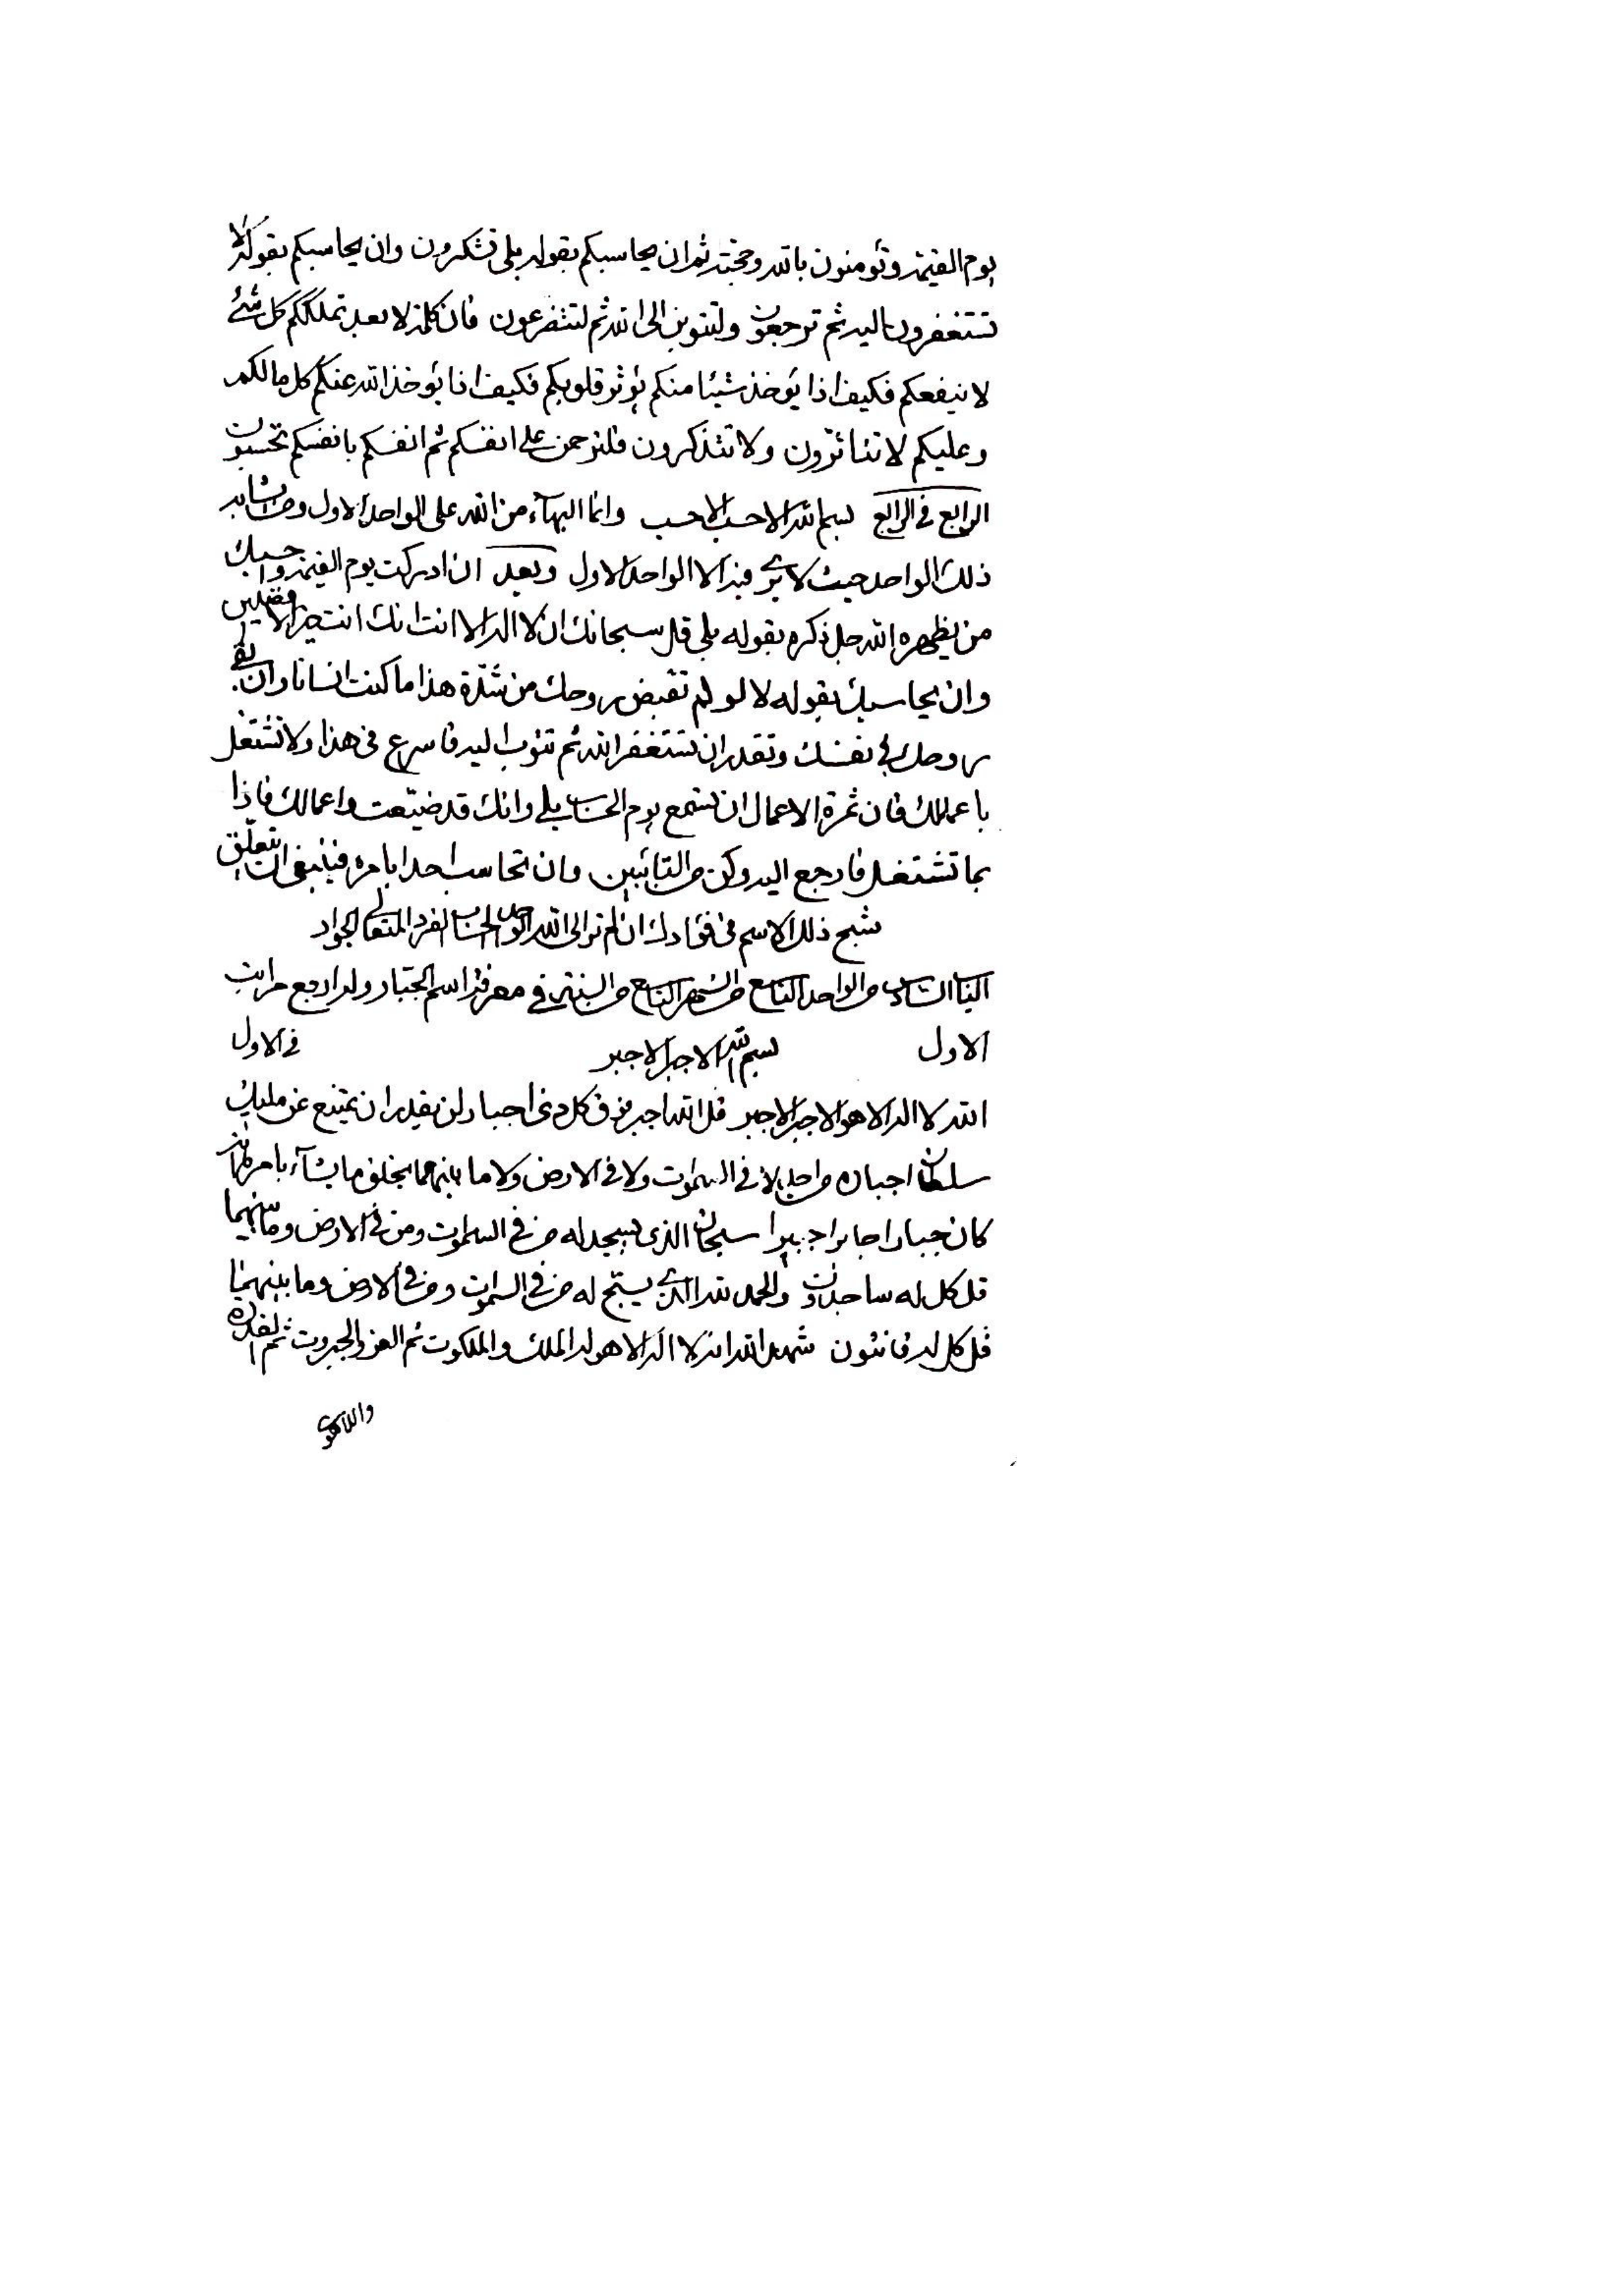 يوم القيمة وتؤمنون بالله وحجته ثم ان يحاسبكم بقوله بلى تشكرون وان يحاسبكم بقوله لا
تستغفرون اليه ثم ترجعون ولتتوبن الى الله ثم لتتضرعون فان كلمة لا بعد تملككم كل شئ
لا ينفعكم فكيف اذا يؤخذ شيئا منكم يؤثر قلوبكم فكيف اذا يؤخذ الله عنكم كل مالكم
وعليكم لا تتاثرون ولا تتذكرون فلترحمن على انفسكم ثم انفسكم بانفسكم تحسبون
الرابع في الرابع بسم الله الاحسب الاحسب وانما البهآء من الله على الواحد الاول ومن يشابه
ذلك الواحد حيث لا يرى فيه الا الواحد الاول وبعد ان ادركت يوم القيمة وحاسبك
من يظهره الله جل ذكره بقوله بلى قل سبحانك ان لا اله الا انت انك انت خير الافضلين
وان يحاسبك بقوله لا لو لم تقبض روحك من شدة هذا ما كنت انسانا وان بقى
روحك في نفسك وتقدر ان تستغفر الله ثم تتوب اليه فاسرع في هذا ولا تشتغل
باعمالك فان ثمرة الاعمال ان تسمع يوم الحساب بلى وانك قد ضيعت واعمالك فاذا
بما تشتغل فارجع اليه وكن من التائبين وان تحاسب احدا بامره فينبغي ان يتعلق
شبح ذلك الاسم في فؤادك ان لم تر الى الله الواحد الحساب الفرد المتعالى الجواد
الباب السادس من الواحد التاسع من الشهر التاسع من السنة في معرفة اسم الجبار وله اربع مراتب
الاول بسم الله الاجبر الاجبر في الاول
الله لا اله الا هو الاجبر الاجبر قل الله اجبر فوق كل ذي اجبار لن يقدر ان يمتنع عن مليك
سلطان اجباره من احد لا في السموات ولا في الارض ولا ما بينهما يخلق ما يشآء بامره انه
كان جبارا جابرا جبيرا سبحان الذي يسجد له من في السموات ومن في الارض وما بينهما
قل كل له ساجدون والحمد لله الذي يسبح له من في السموات ومن في الارض وما بينهما
قل كل له قانتون شهد الله انه لا اله الا هو له الملك والملكوت ثم العز والجبروت ثم القدرة
واللاهوت